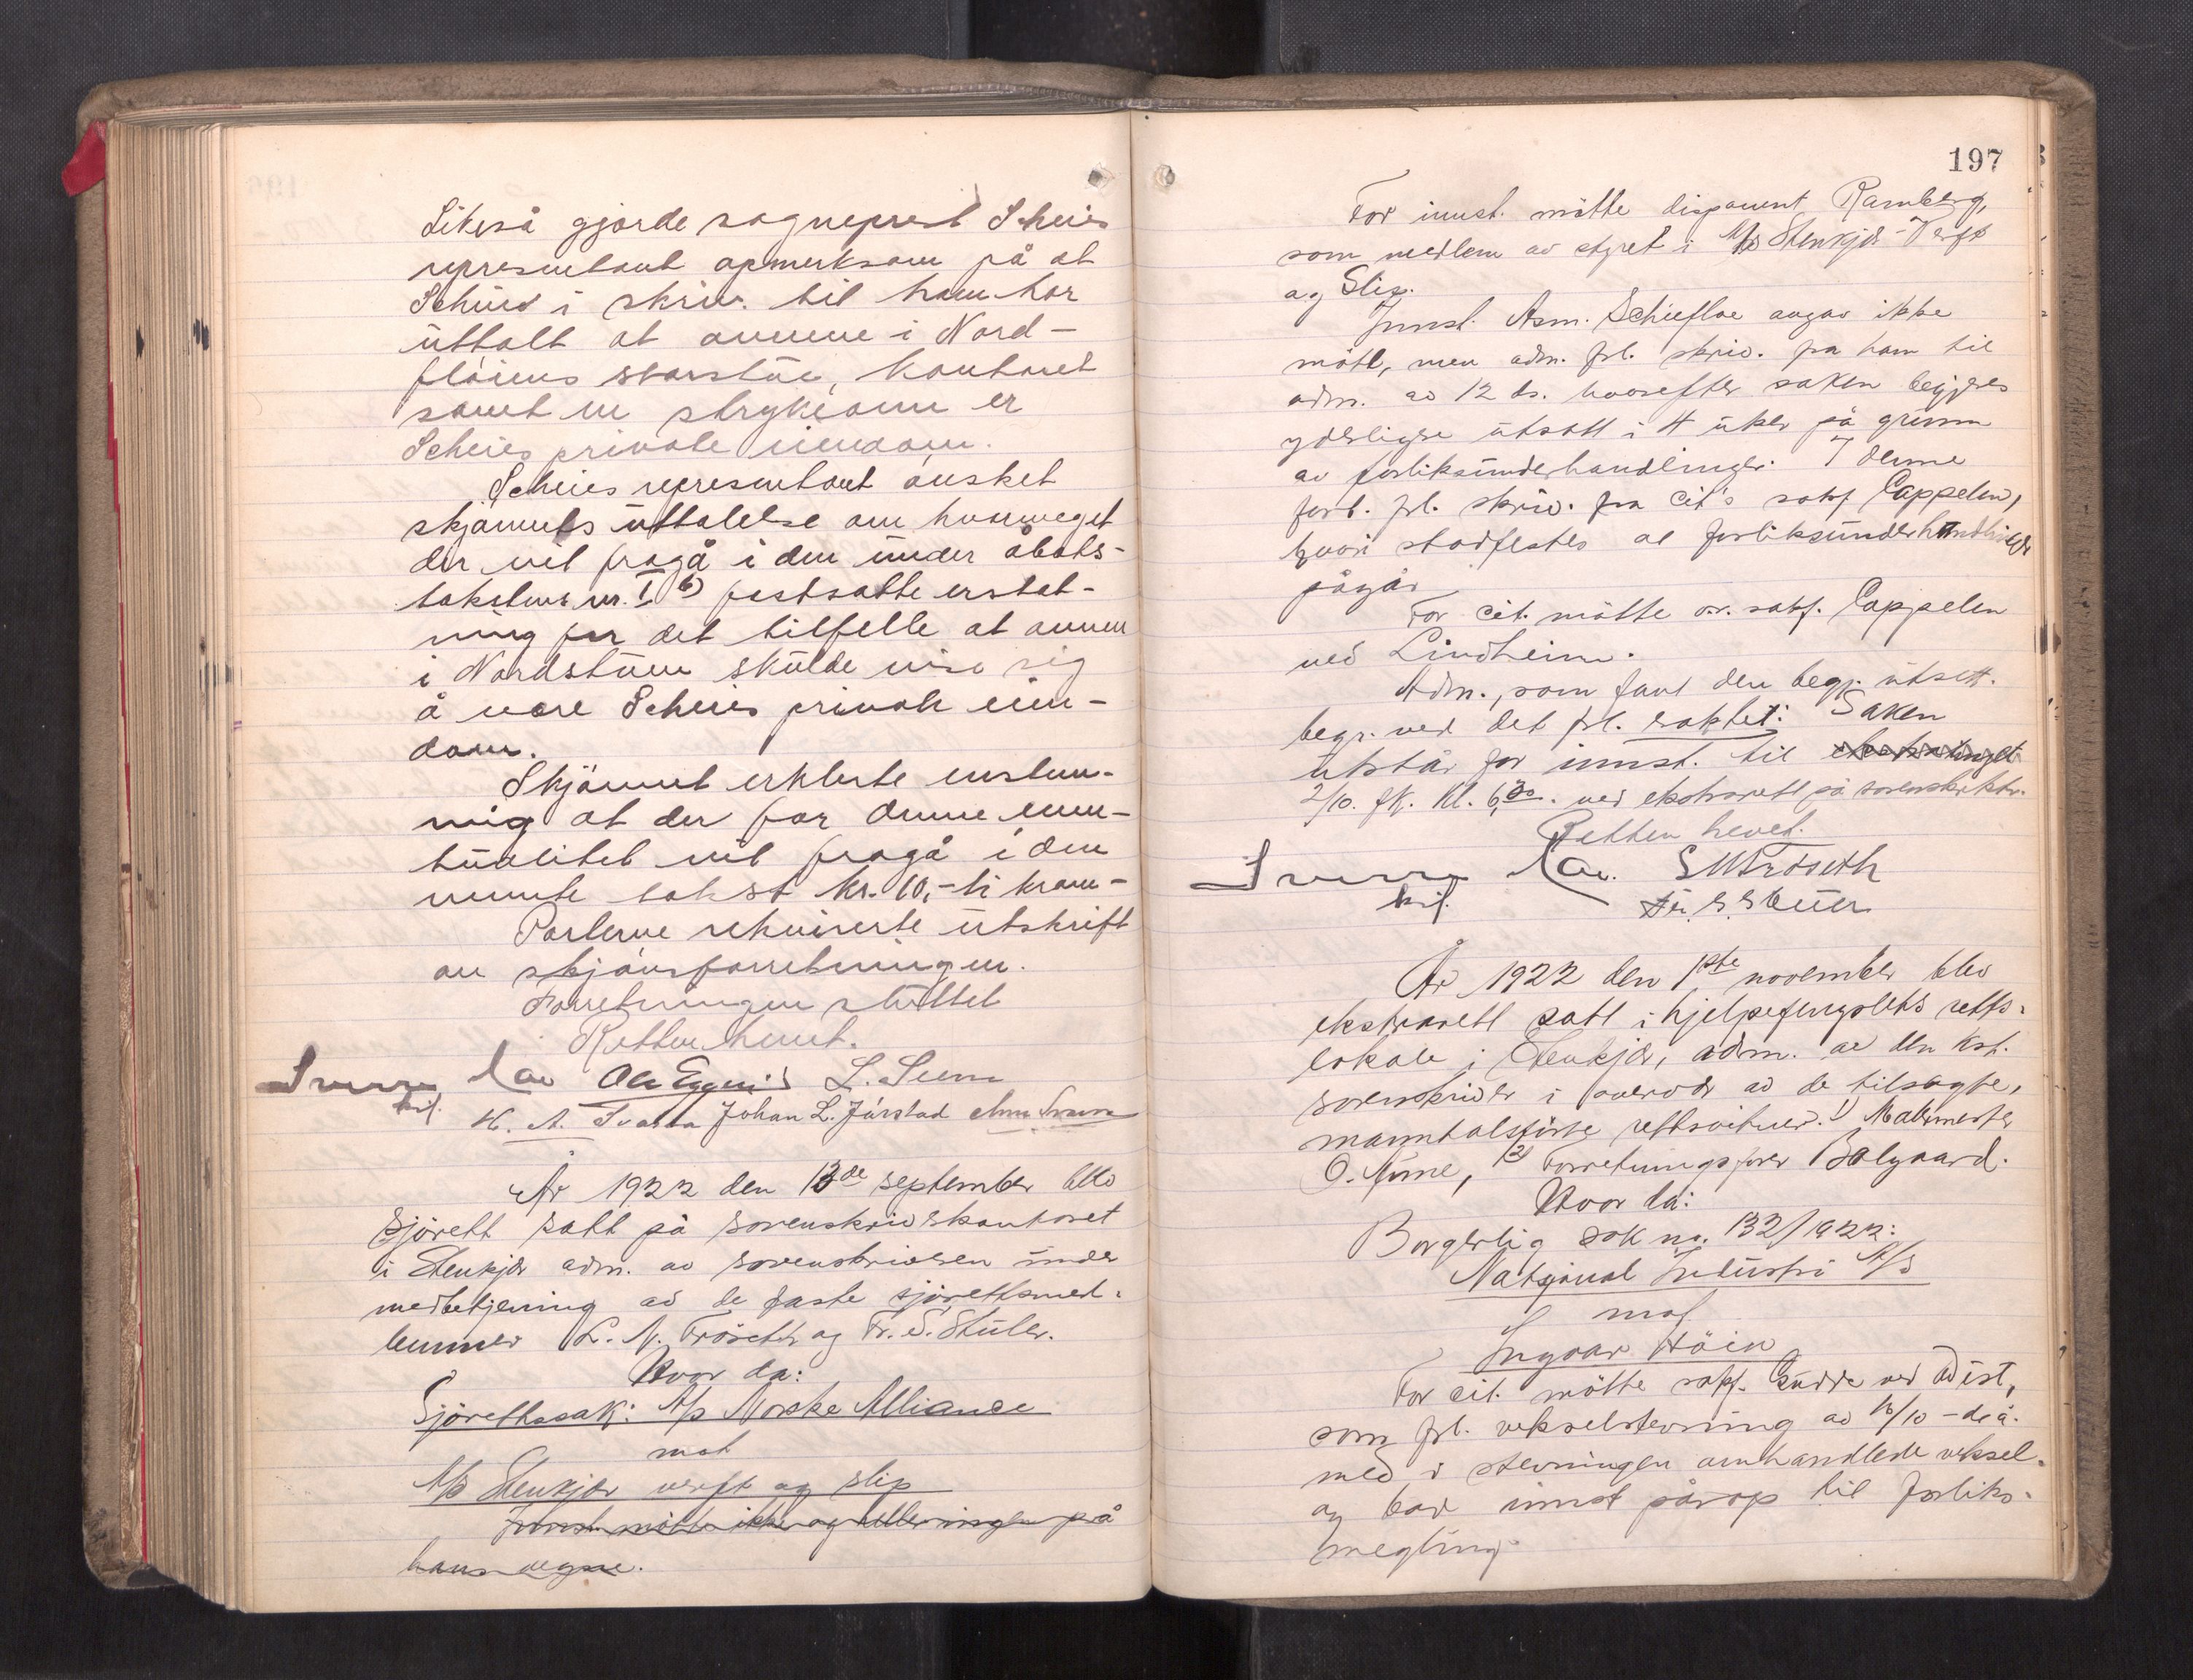 Likeså gjorde sogneprest Scheies
representant opmerksom på at
Scheies i skriv. til ham har
uttalt at ovnene i Nord-
fløiens storstue, kontoret
samt en strykeovn er
Scheies private eiendom.
Scheies representant ønsket
skjønnets uttalelse om hvormeget
der vil fragå i den under åbots-
takstens nr. I 6) fastsatte erstat-
ning for det tilfelle at ovnen
i Nordstuen skulde vise sig
å være Scheies private eien-
dom.
Skjønnet erklærte enstem-
mig at der for denne even-
tualitet vil fragå i den
nevnte takst kr. 10,- ti kron-
Parterne rekvirerte utskrift
av skjønsforretningen.
Forretningen sluttet
Retten hevet.
kst.
L. Seem
H. A. Johan L. Jørstad
År 1922 den 13de september blev
Sjørett satt på sorenskriverkontoret
i Stenkjær adm. av sorenskriveren under
medbetjening av de faste sjørettsmed-
lemmer L. M. Trøseth og Fr. S. Stuler.
Hvor da:
Sjørettssak: A/s Norske Alliance
mot
A/s Stenkjær verft og slip
Innst. møtte ikke og heller ingen på
hans vegne.
197
For innst. møtte disponent Ramberg,
som medlem av styret i A/s Stenkjær Verft
og Slip.
Innst. Asm. Schiefloe angav ikke
møtt, men adm. frl. skriv. fra ham til
adm. av 12 ds. hvorefter saken begjæres
yderligere utsatt i 4 uker på grunn
av forliksunderhandlinger. I denne
forb. frl. skriv. fra cit's sakf. Cappelen,
hvori stadfestes at forliksunderhandlinger
pågår
For cit. møtte o.r. sakf. Cappelen
ved Lindheim.
Adm., som fant den begj. utsett.
begr. ved det frl. saktet: Saken
utstår for innst. til
2/10. fk. kl. 6,30. ved ekstrarett på sorenskr.ktr.
Retten hevet.
kst.
År 1922 den 1ste november blev
ekstrarett satt i hjelpefengslets retts-
lokale i Stenkjær, adm. av den kst.
sorenskriver i overvær av de tilsagte,
manntalsførte rettsvitner: 1) Malermester
O. Aune, 2) Forretningsfører Bolgaard.
Hvor da:
Borgerlig sak nr. 132/1922:
Natsjonal Industri A/S
mot
Ingvar Høin
For cit. møtte sakf. Gudde ved Wist,
som frl. vekselstevning av 16/10 - ds å.
med i stevningen omhandlede veksel.
og bad innst påropt til forliks-
megling.